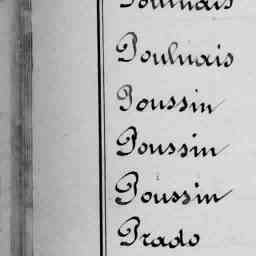 Poulnais
Poulnais
Poussin
Poussin
Poussin
Prado